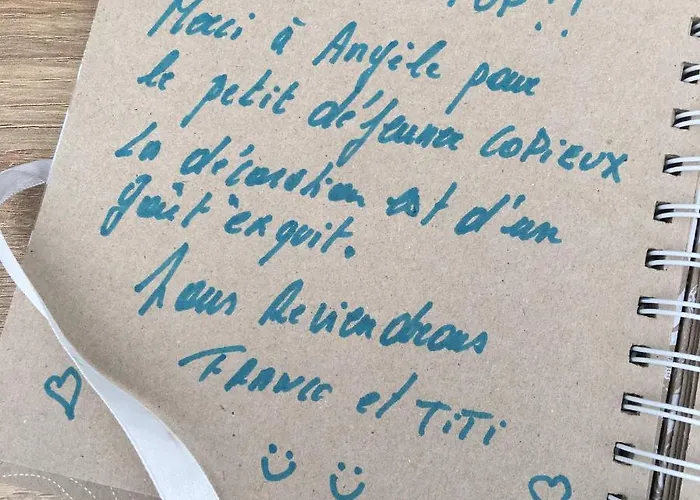 TOP !!
Merci à Angèle pour
le petit déjeuner COPIEUX
La décoration est d'un
goût exquit.
Nous Reviendrons
FRANCK et TiTi